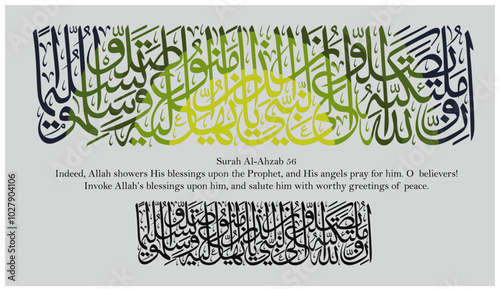 إن الله وملائكته يصلون على النبي يا أيها الذين آمنوا صلوا عليه وسلموا تسليما
Surah Al-Ahzab 56
Indeed, Allah showers His blessings upon the Prophet, and His angels pray for him. O believers!
Invoke Allah's blessings upon him, and salute him with worthy greetings of peace.
إن الله وملائكته يصلون على النبي يا أيها الذين آمنوا صلوا عليه وسلموا تسليما
Adobe Stock | #1027904106